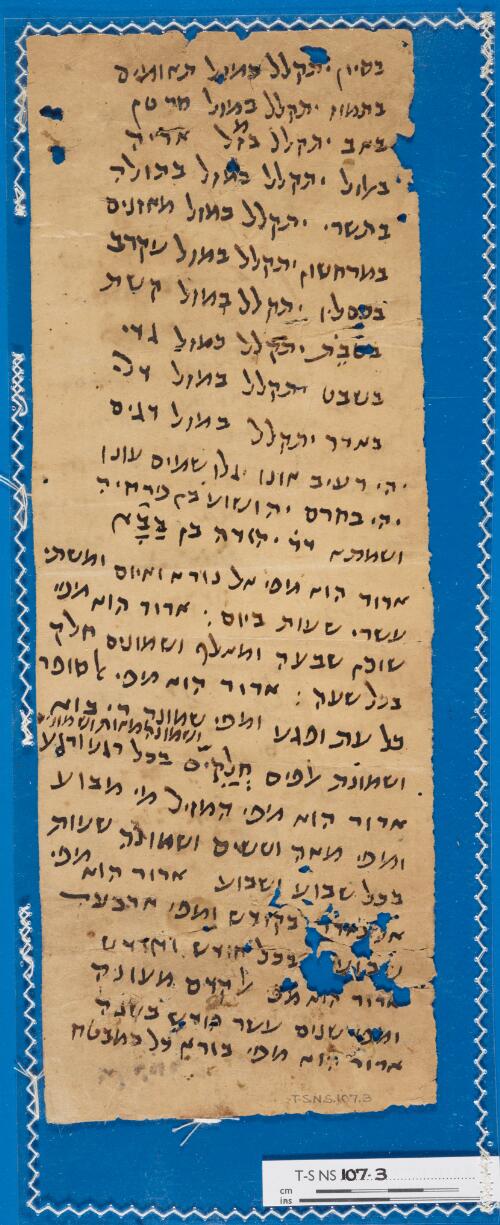 בסיון יתקלל במזל תאומים
בתמוז יתקלל במזל סרטן
באב יתקלל במזל אריה
באלול יתקלל במזל בתולה
בתשרי יתקלל במזל מאזנים
במרחשון יתקלל במזל עקרב
בכסליו יתקלל במזל קשת
בטבת יתקלל במזל גדי
בשבט יתקלל במזל דלה
באדר יתקלל במזל דגים
יהי רעיב אונו יגלו שמים עונו
יהי בחרם יהושוע בן פרחיה
ושמתא דר יהודה בן בבא
ארור הוא מפי אל נורא ואיום ומשתי
עשרי שעות ביום : ארור הוא מפי
שוכן שבעה ומאלף ושמונים חלק
בכל שעה : ארור הוא מפי הסופר
כל עת ופגע ומפי שמונה די בוא
ושמונה מאות ושמונים
ושמונת אלפים חלקים בכל רגע ורגע
ארור הוא מפי המזיל מי מבוע
ומפי מאה וששים ושמונה שעות
בכל שבוע ושבוע ארור הוא מפי
בקודש ומפי ארבעה
בכל חודש וחודש
ארור הוא מפי אלהים מעונה
ומפי שנים עשר חודש בשנה
ארור הוא מפי בורא כל במבטח
T-S.N.S.107.3
T-S NS 107.3
cm
ins